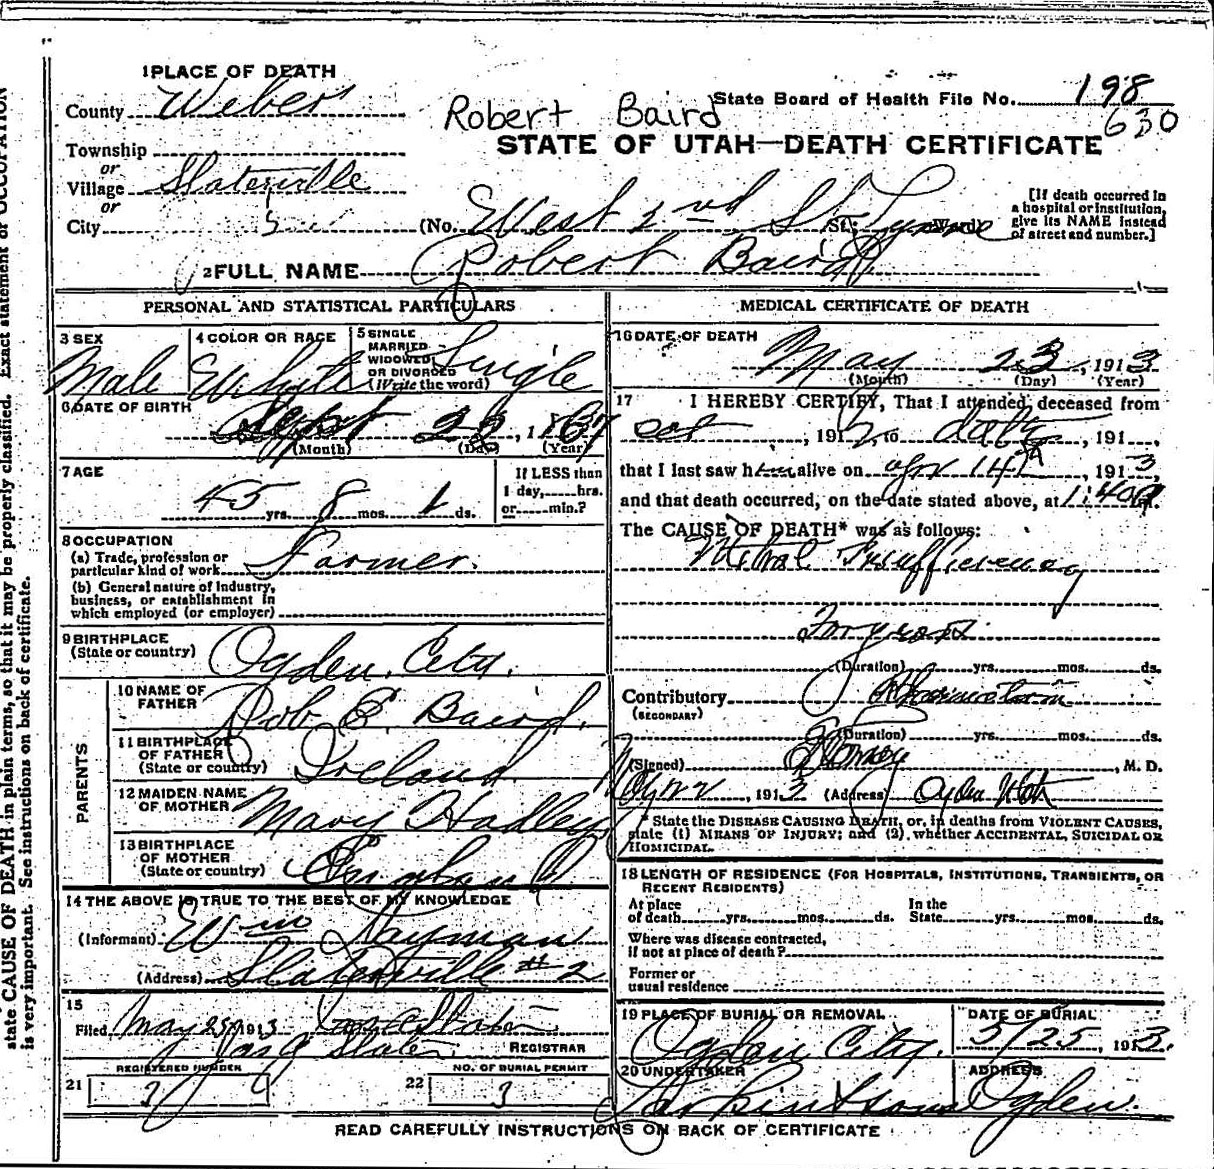 1 PLACE OF DEATH
County Weber
Robert Baird
State Board of Health File No. 198
630
STATE OF UTAH—DEATH CERTIFICATE
Township
or
Village Slaterville
or
City
(No. West 2nd St. Lynne St.; Ward)
[If death occurred in a hospital or institution, give its NAME instead of street and number.]
2 FULL NAME Robert Baird
PERSONAL AND STATISTICAL PARTICULARS
3 SEX Male
4 COLOR OR RACE White
5 SINGLE MARRIED WIDOWED OR DIVORCED (Write the word) Single
6 DATE OF BIRTH Sept 22, 1867
(Month) (Day) (Year)
7 AGE 45 yrs. 8 mos. 1 ds.
If LESS than 1 day, hrs. or min.?
8 OCCUPATION
(a) Trade, profession or particular kind of work Farmer.
(b) General nature of industry, business, or establishment in which employed (or employer)
9 BIRTHPLACE (State or country) Ogden City.
PARENTS
10 NAME OF FATHER Rob E. Baird.
11 BIRTHPLACE OF FATHER (State or country) Ireland.
12 MAIDEN NAME OF MOTHER Mary Hadley
13 BIRTHPLACE OF MOTHER (State or country) England
14 THE ABOVE IS TRUE TO THE BEST OF MY KNOWLEDGE
(Informant) Wm Wayman
(Address) Slaterville #2
15
Filed May 25 1913
Jas A Slater
REGISTRAR
REGISTERED NUMBER
21
NO. OF BURIAL PERMIT
22 3
MEDICAL CERTIFICATE OF DEATH
16 DATE OF DEATH
May 23, 1913
(Month) (Day) (Year)
17 I HEREBY CERTIFY, That I attended deceased from
oct, 1912 to date, 191 ,
that I last saw him alive on apr 14th, 1913
and that death occurred, on the date stated above, at 1:40 m.
The CAUSE OF DEATH* was as follows:
Mitral Insufficiency
For years
(Duration) yrs. mos. ds.
Contributory Rheumatism
(SECONDARY)
(Duration) yrs. mos. ds.
(Signed) , M. D.
, 1913 (Address) Ogden Utah
* State the DISEASE CAUSING DEATH, or, in deaths from VIOLENT CAUSES, state (1) MEANS OF INJURY; and (2) whether ACCIDENTAL, SUICIDAL OR HOMICIDAL.
18 LENGTH OF RESIDENCE (FOR HOSPITALS, INSTITUTIONS, TRANSIENTS, OR RECENT RESIDENTS)
At place of death yrs. mos. ds. In the State yrs. mos. ds.
Where was disease contracted, if not at place of death?
Former or usual residence
19 PLACE OF BURIAL OR REMOVAL Ogden City.
DATE OF BURIAL 5/25, 1913.
20 UNDERTAKER Larkin & Sons
ADDRESS Ogden.
READ CAREFULLY INSTRUCTIONS ON BACK OF CERTIFICATE
state CAUSE OF DEATH in plain terms, so that it may be properly classified. Exact statement of OCCUPATION
is very important. See instructions on back of certificate.